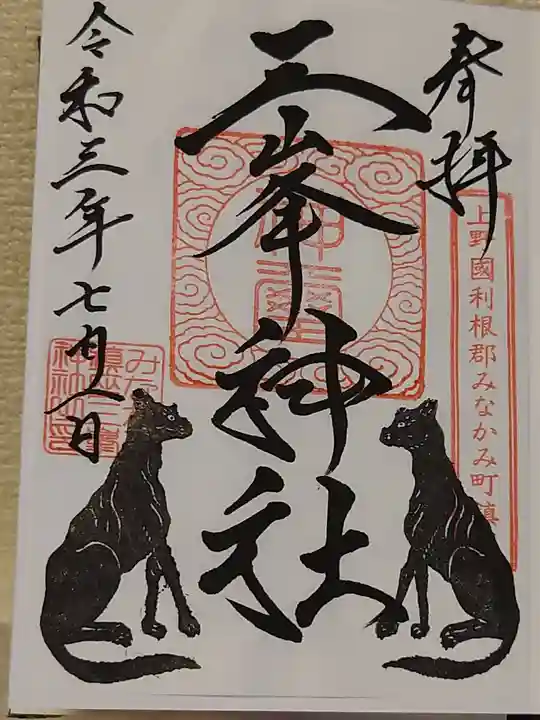 奉拝
上野國利根郡みなかみ町鎮
三峯神社
令和三年七月八日